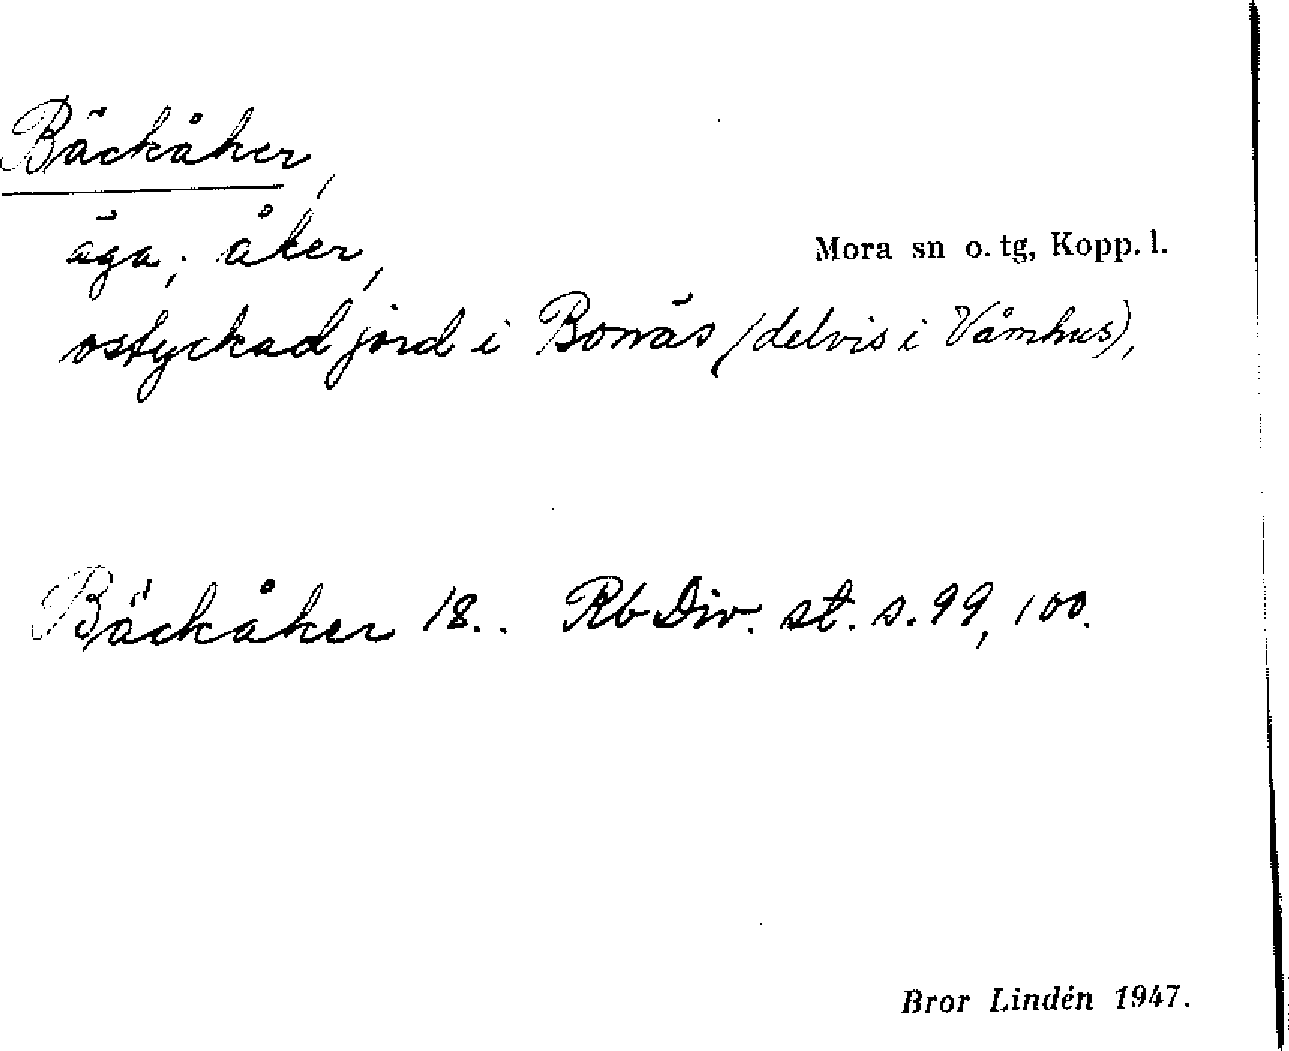 Bäckåker,
äga; åker,
Mora sn o. tg, Kopp. l.
ostyckad jord i Bonäs (delvis i Våmhus),
Bäckåker 18.. Rb Div. st. s. 99, 100.
Bror Lindén 1947.